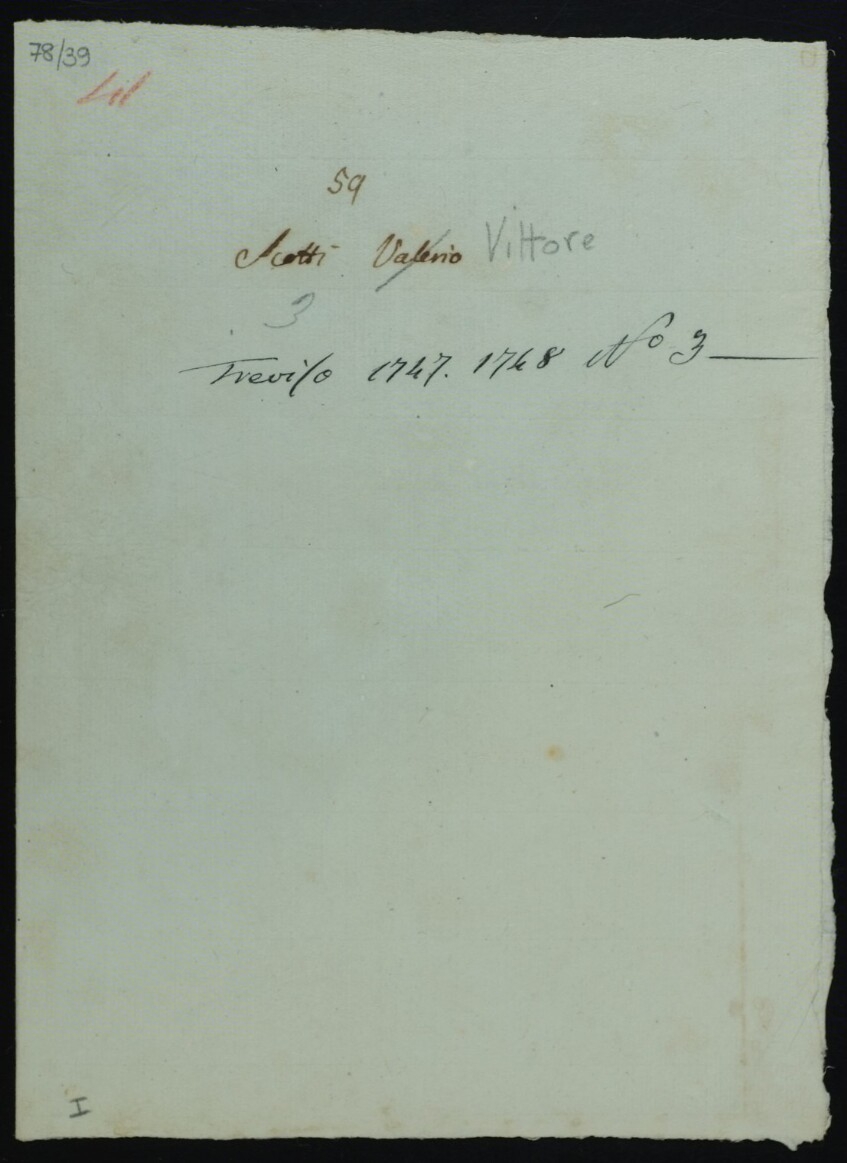 78/39
59
Scotti Valerio Vittore
3
Treviso 1747. 1748 No 3
I